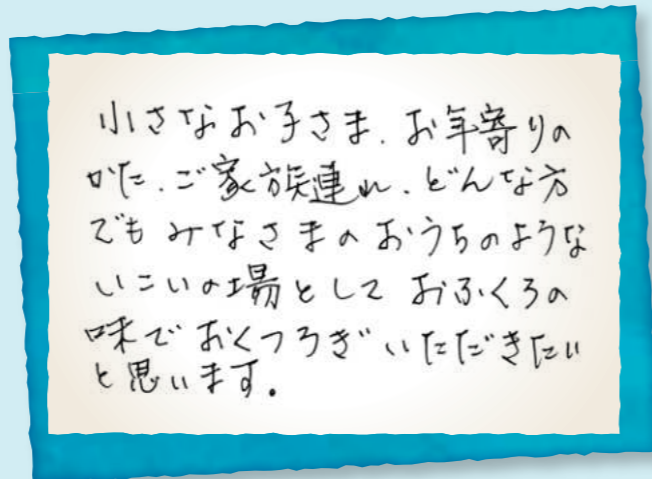 小さなお子さま、お年寄りの
かた、ご家族連れ、どんな方
でも みなさまの おうちのような
いこいの場として おふくろの
味で おくつろぎ いただきたい
と思います。